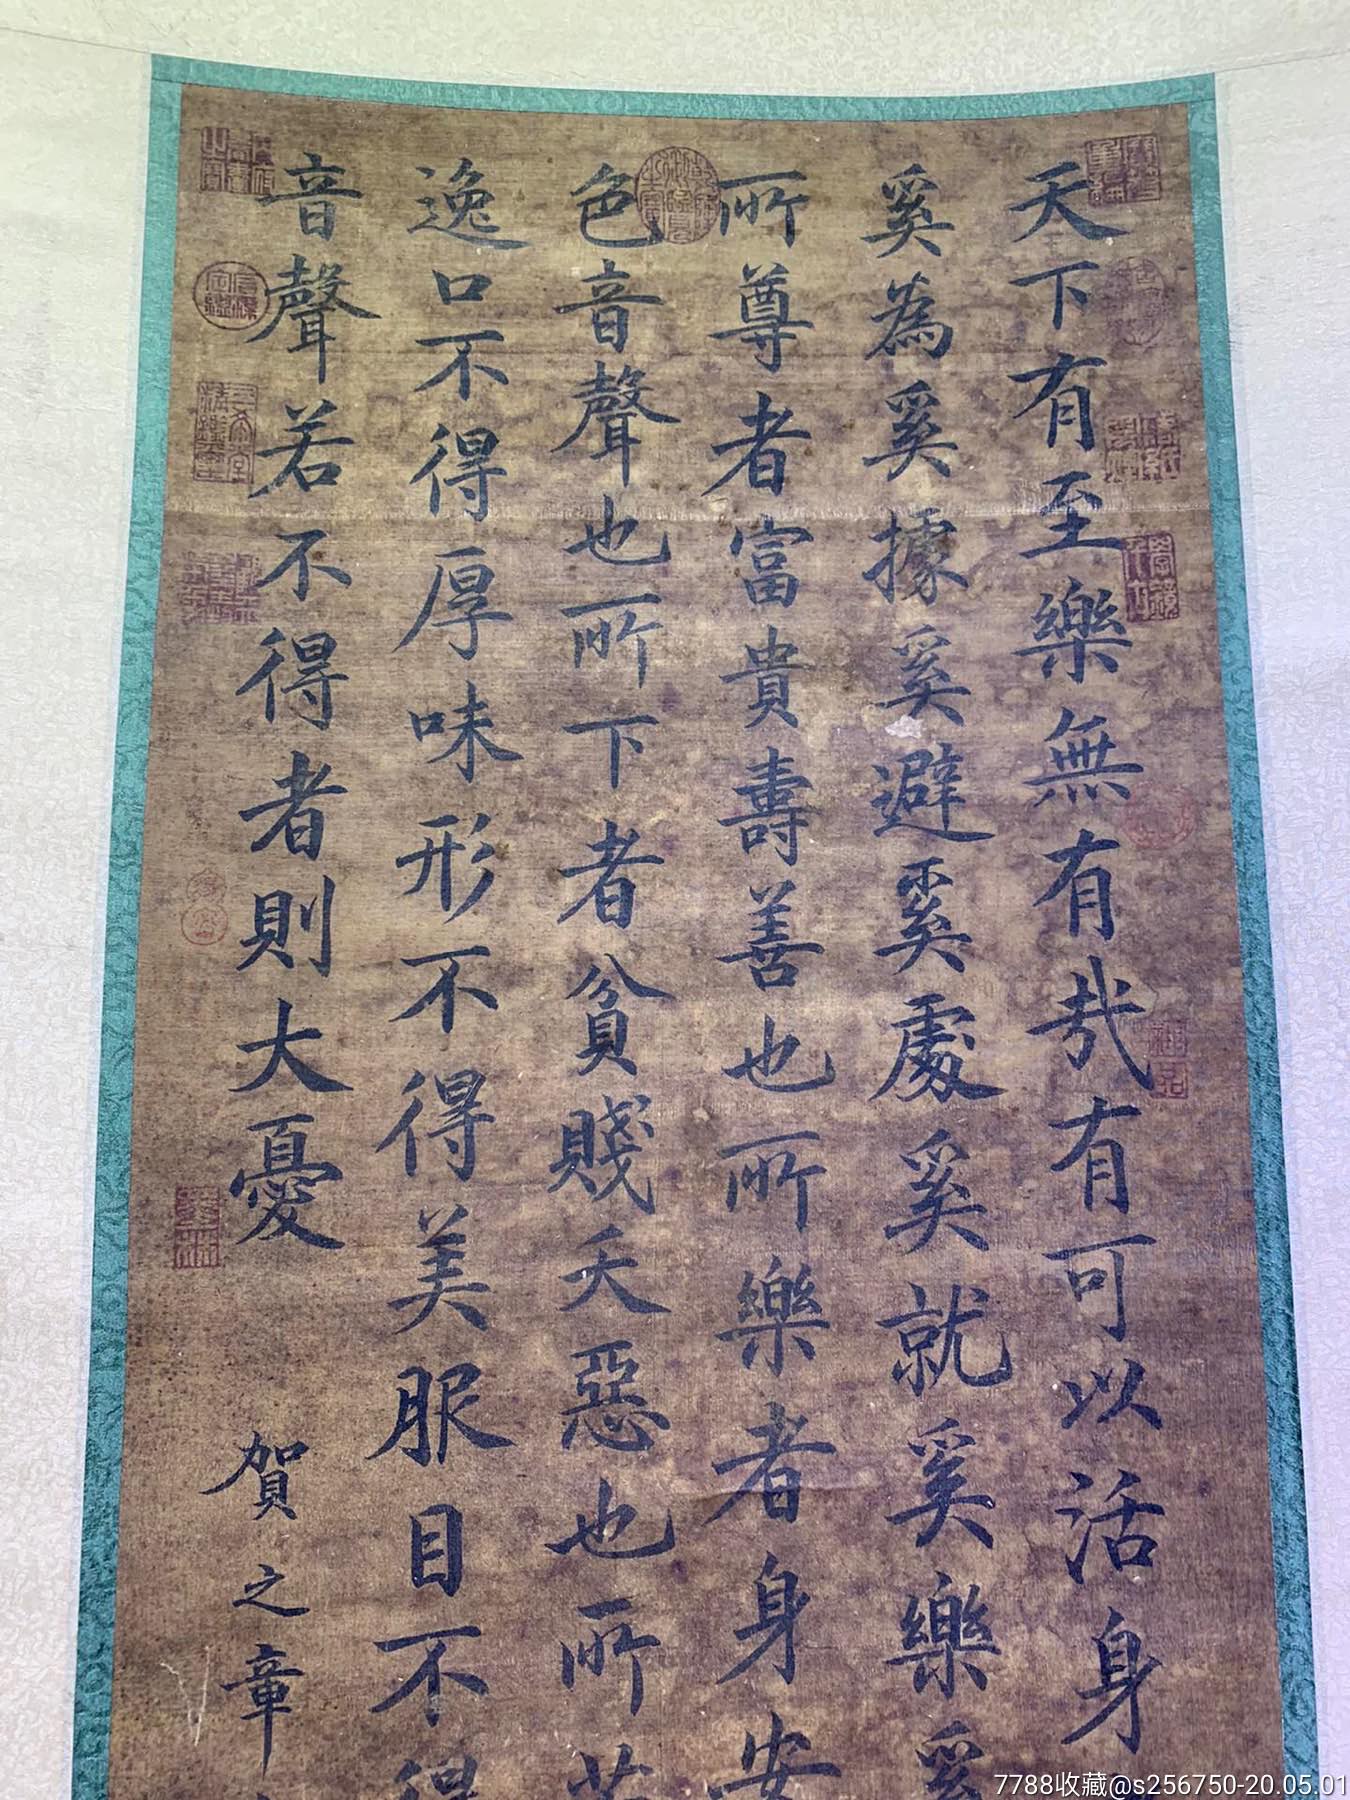 天下有至樂無有哉有可以活身
奚為奚據奚避奚處奚就奚樂奚
所尊者富貴壽善也所樂者身安
色音聲也所下者貧賤夭惡也所苦
逸口不得厚味形不得美服目不得
音聲若不得者則大憂
賀之章
7788收藏@s256750-20.05.01